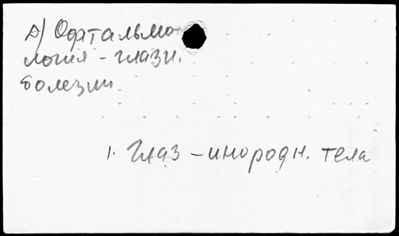 А) Офтальмо-
логия - глазн.
болезни.
1. Глаз - инородн. тела